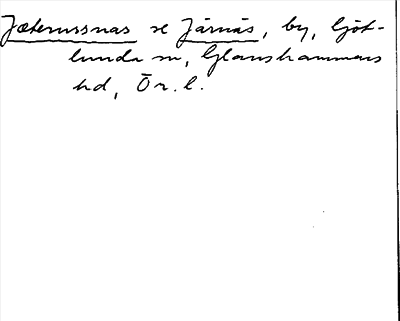 Jæterussnas se Järnäs, by, Ljöt-
lunda sn, Glanshammars
hd, Ör. l.